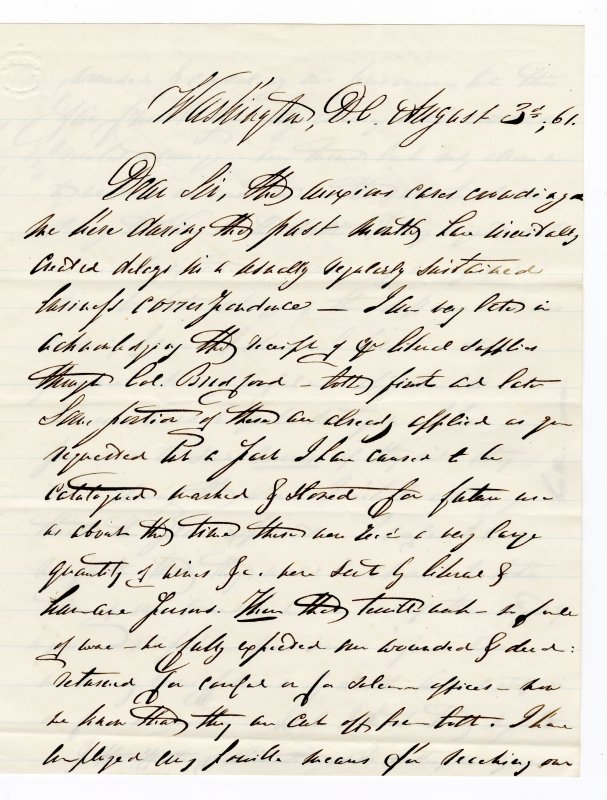 Washington, D.C. August 3d, 61.
Dear Sir, The anxious cares crowding on
me here during the past month have inevitably
created delays in a usually regularly sustained
business correspondence — I am very late in
acknowledging the receipt of yr liberal supplies
through Col. Bradford — both first and later
Some portion of these are already applied as you
requested but a part I have caused to be
catalogued marked & stored for future use
as about the time these were rec'd a very large
quantity of wines &c. were sent by liberal &
humane persons. Then that terrible week — so full
of woe — we fully expected our wounded & dead
returned for comfort or for solemn offices — now
we know that they are cut off from both. I have
employed every possible means for reaching our